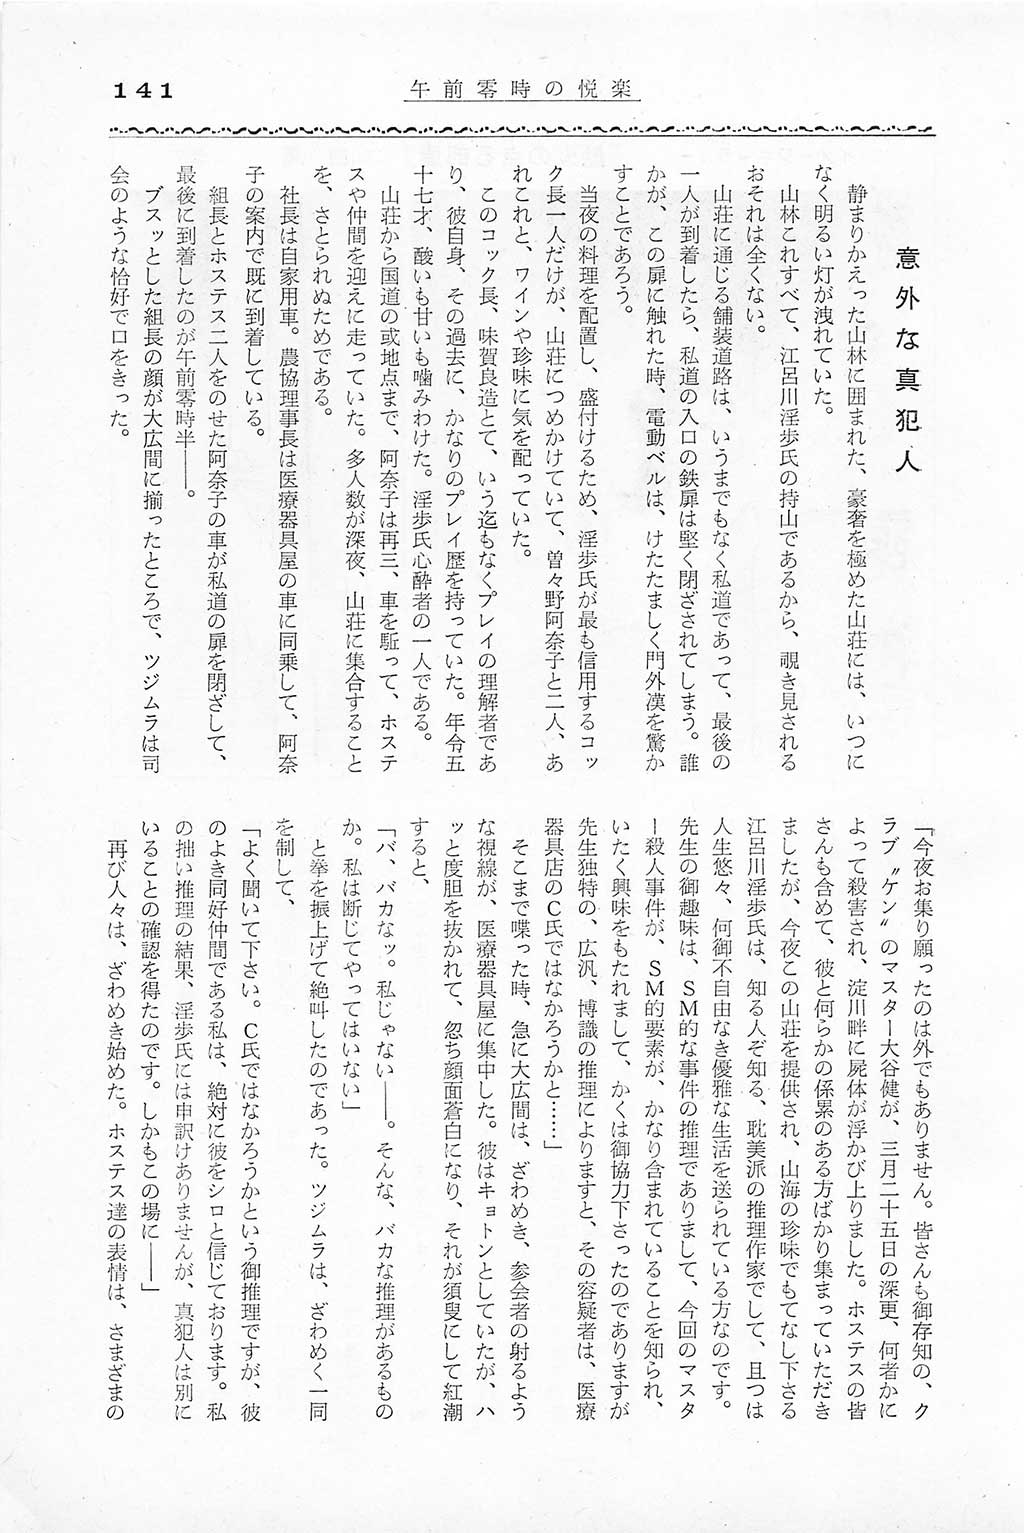 141
午前零時の悦楽
意外な真犯人
静まりかえった山林に囲まれた、豪奢を極めた山荘には、いつに
なく明るい灯が洩れていた。
山林これすべて、江呂川淫歩氏の持山であるから、覗き見される
おそれは全くない。
山荘に通じる舗装道路は、いうまでもなく私道であって、最後の
一人が到着したら、私道の入口の鉄扉は堅く閉ざされてしまう。誰
かが、この扉に触れた時、電動ベルは、けたたましく門外漢を驚か
すことであろう。
当夜の料理を配置し、盛付けるため、淫歩氏が最も信用するコッ
ク長一人だけが、山荘につめかけていて、曽々野阿奈子と二人、あ
れこれと、ワインや珍味に気を配っていた。
このコック長、味賀良造とて、いう迄もなくプレイの理解者であ
り、彼自身、その過去に、かなりのプレイ歴を持っていた。年令五
十七才、酸いも甘いも噛みわけた。淫歩氏心酔者の一人である。
山荘から国道の或地点まで、阿奈子は再三、車を駈って、ホステ
スや仲間を迎えに走っていた。多人数が深夜、山荘に集合すること
を、さとられぬためである。
社長は自家用車。農協理事長は医療器具屋の車に同乗して、阿奈
子の案内で既に到着している。
組長とホステス二人をのせた阿奈子の車が私道の扉を閉ざして、
最後に到着したのが午前零時半――。
ブスッとした組長の顔が大広間に揃ったところで、ツジムラは司
会のような恰好で口をきった。
『今夜お集り願ったのは外でもありません。皆さんも御存知の、ク
ラブ〝ケン〟のマスター大谷健が、三月二十五日の深更、何者かに
よって殺害され、淀川畔に屍体が浮かび上りました。ホステスの皆
さんも含めて、彼と何らかの係累のある方ばかり集まっていただき
ましたが、今夜この山荘を提供され、山海の珍味でもてなし下さる
江呂川淫歩氏は、知る人ぞ知る、耽美派の推理作家でして、且つは
人生悠々、何御不自由なき優雅な生活を送られている方なのです。
先生の御趣味は、SM的な事件の推理でありまして、今回のマスタ
ー殺人事件が、SM的要素が、かなり含まれていることを知られ、
いたく興味をもたれまして、かくは御協力下さったのでありますが
先生独特の、広汎、博識の推理によりますと、その容疑者は、医療
器具店のC氏ではなかろうかと……」
そこまで喋った時、急に大広間は、ざわめき、参会者の射るよう
な視線が、医療器具屋に集中した。彼はキョトンとしていたが、ハ
ッと度胆を抜かれて、忽ち顔面蒼白になり、それが須臾にして紅潮
すると、
「バ、バカなッ。私じゃない――。そんな、バカな推理があるもの
か。私は断じてやってはいない」
と拳を振上げて絶叫したのであった。ツジムラは、ざわめく一同
を制して、
「よく聞いて下さい。C氏ではなかろうかという御推理ですが、彼
のよき同好仲間である私は、絶対に彼をシロと信じております。私
の拙い推理の結果、淫歩氏には申訳けありませんが、真犯人は別に
いることの確認を得たのです。しかもこの場に――」
再び人々は、ざわめき始めた。ホステス達の表情は、さまざまの